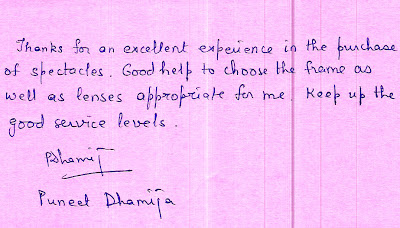 Thanks for an excellent expeience in the purchase
of spectacles. Good help to choose the frame as
well as lenses appropriate for me. Keep up the
good service levels.
Puneet Dhamija